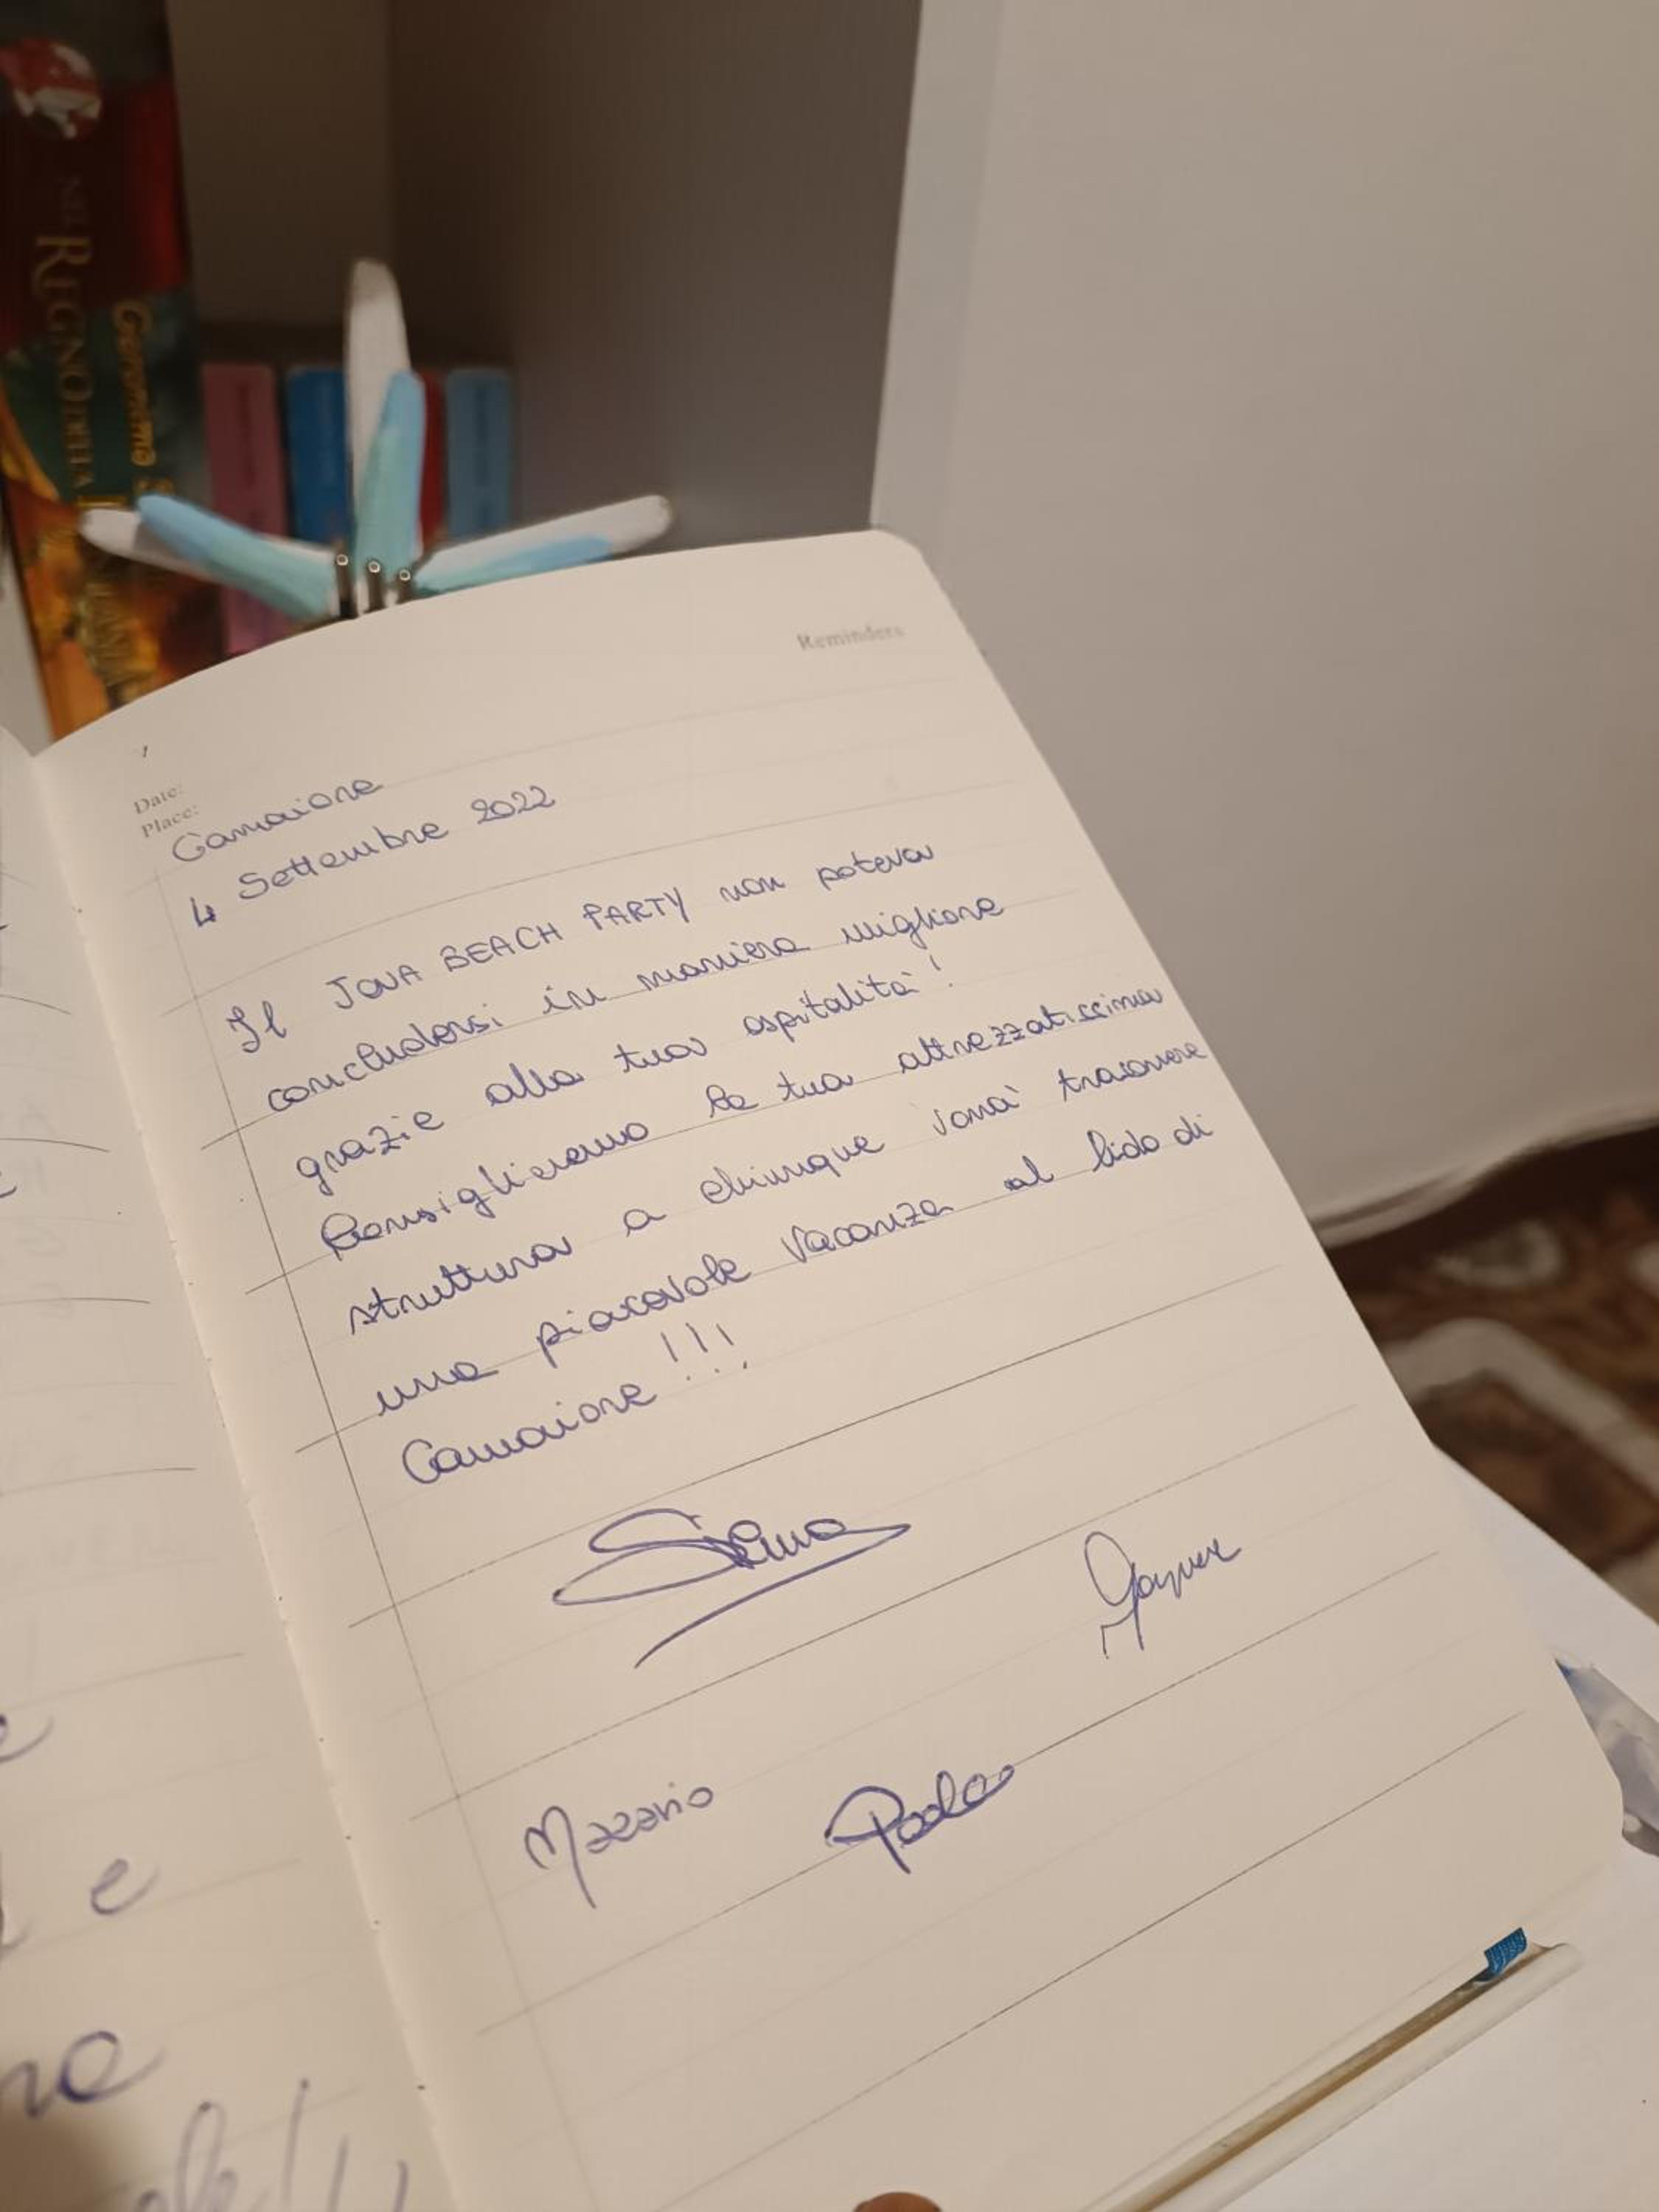 NEL
REGNO DELLA
Geronimo S
Reminders
Date:
Place:
Camaiore
4 Settembre 2022
Il JOVA BEACH PARTY non poteva
concludersi in maniera migliore
grazie alla tua ospitalità!
Consiglieremo la tua attrezzatissima
struttura a chiunque vorrà trascorrere
una piacevole vacanza al lido di
Camaiore!!!
Macario
Paola